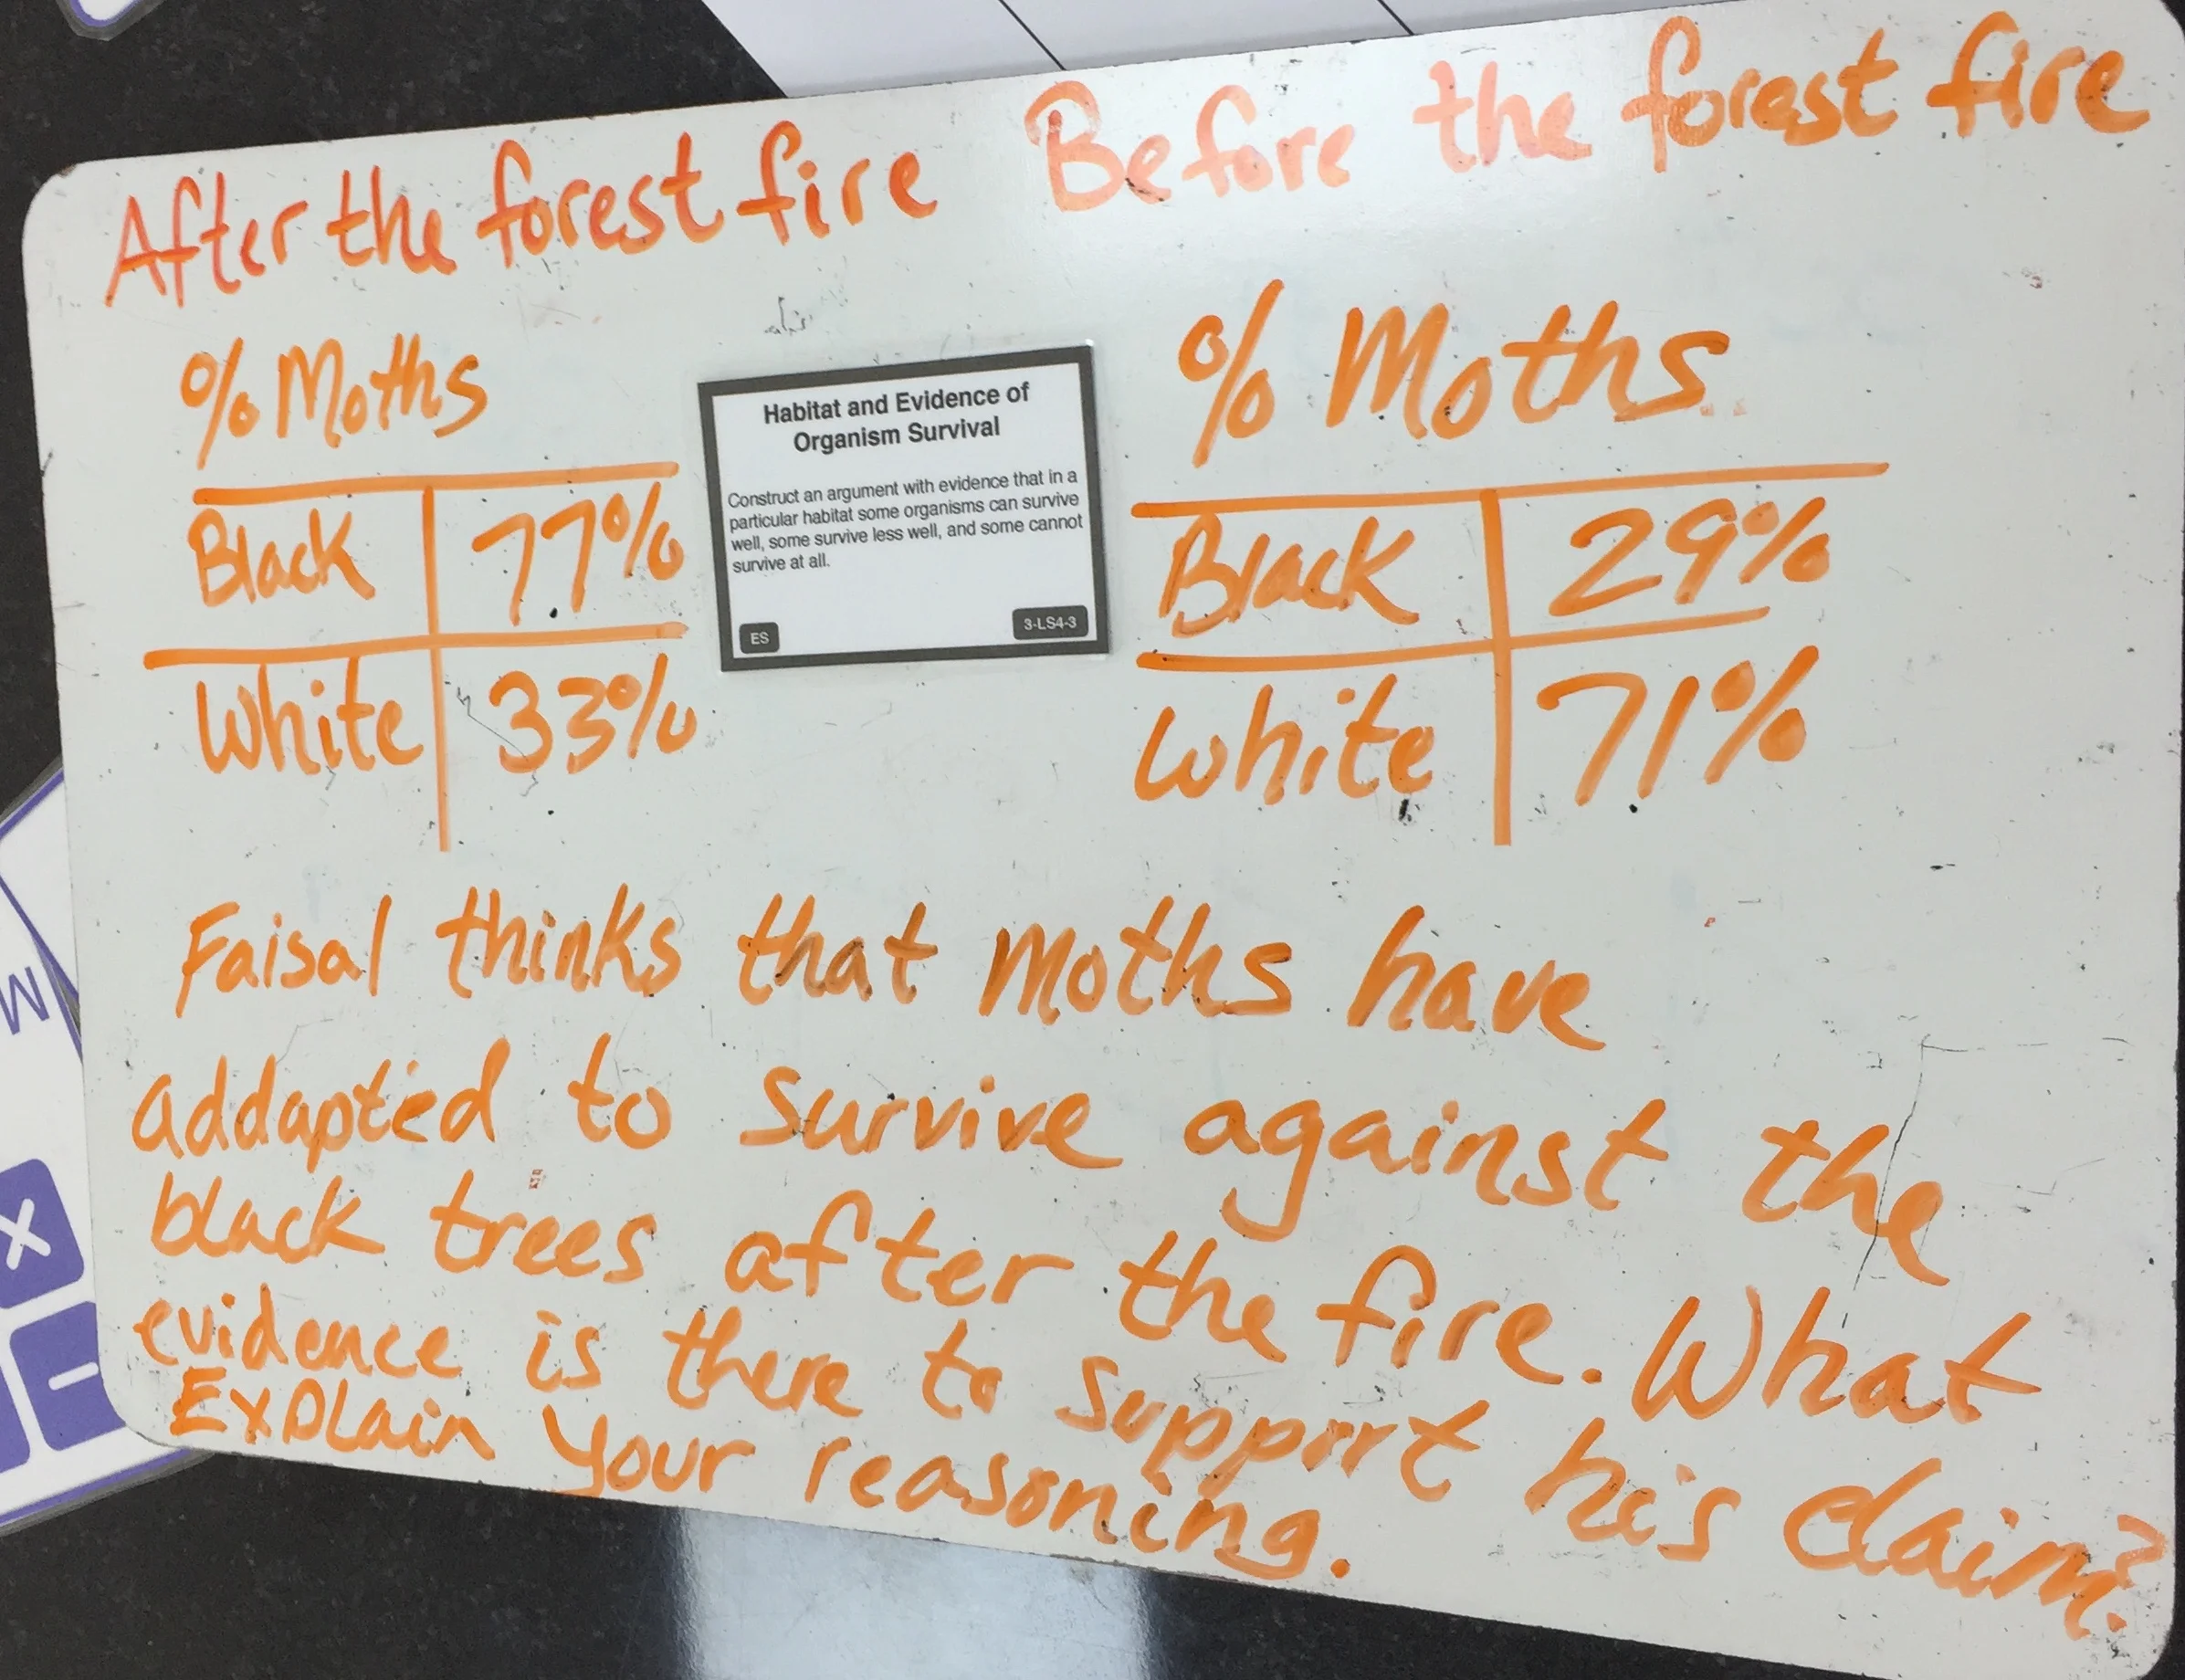 After the forest fire
% Moths
Black 77%
White 33%
Habitat and Evidence of
Organism Survival
Construct an argument with evidence that in a
particular habitat some organisms can survive
well, some survive less well, and some cannot
survive at all.
ES 3-LS4-3
Before the forest fire
% Moths
Black 29%
White 71%
Faisal thinks that Moths have
addapted to survive against the
black trees after the fire. What
evidence is there to support his claim?
Explain your reasoning.
M
×
−